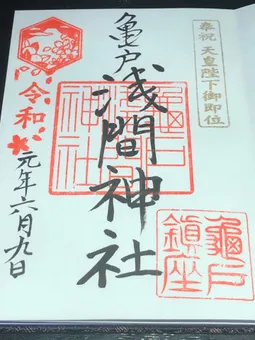 奉祝 天皇陛下御即位
亀戸浅間神社
令和元年六月九日
亀戸浅間神社
龜戸鎮座